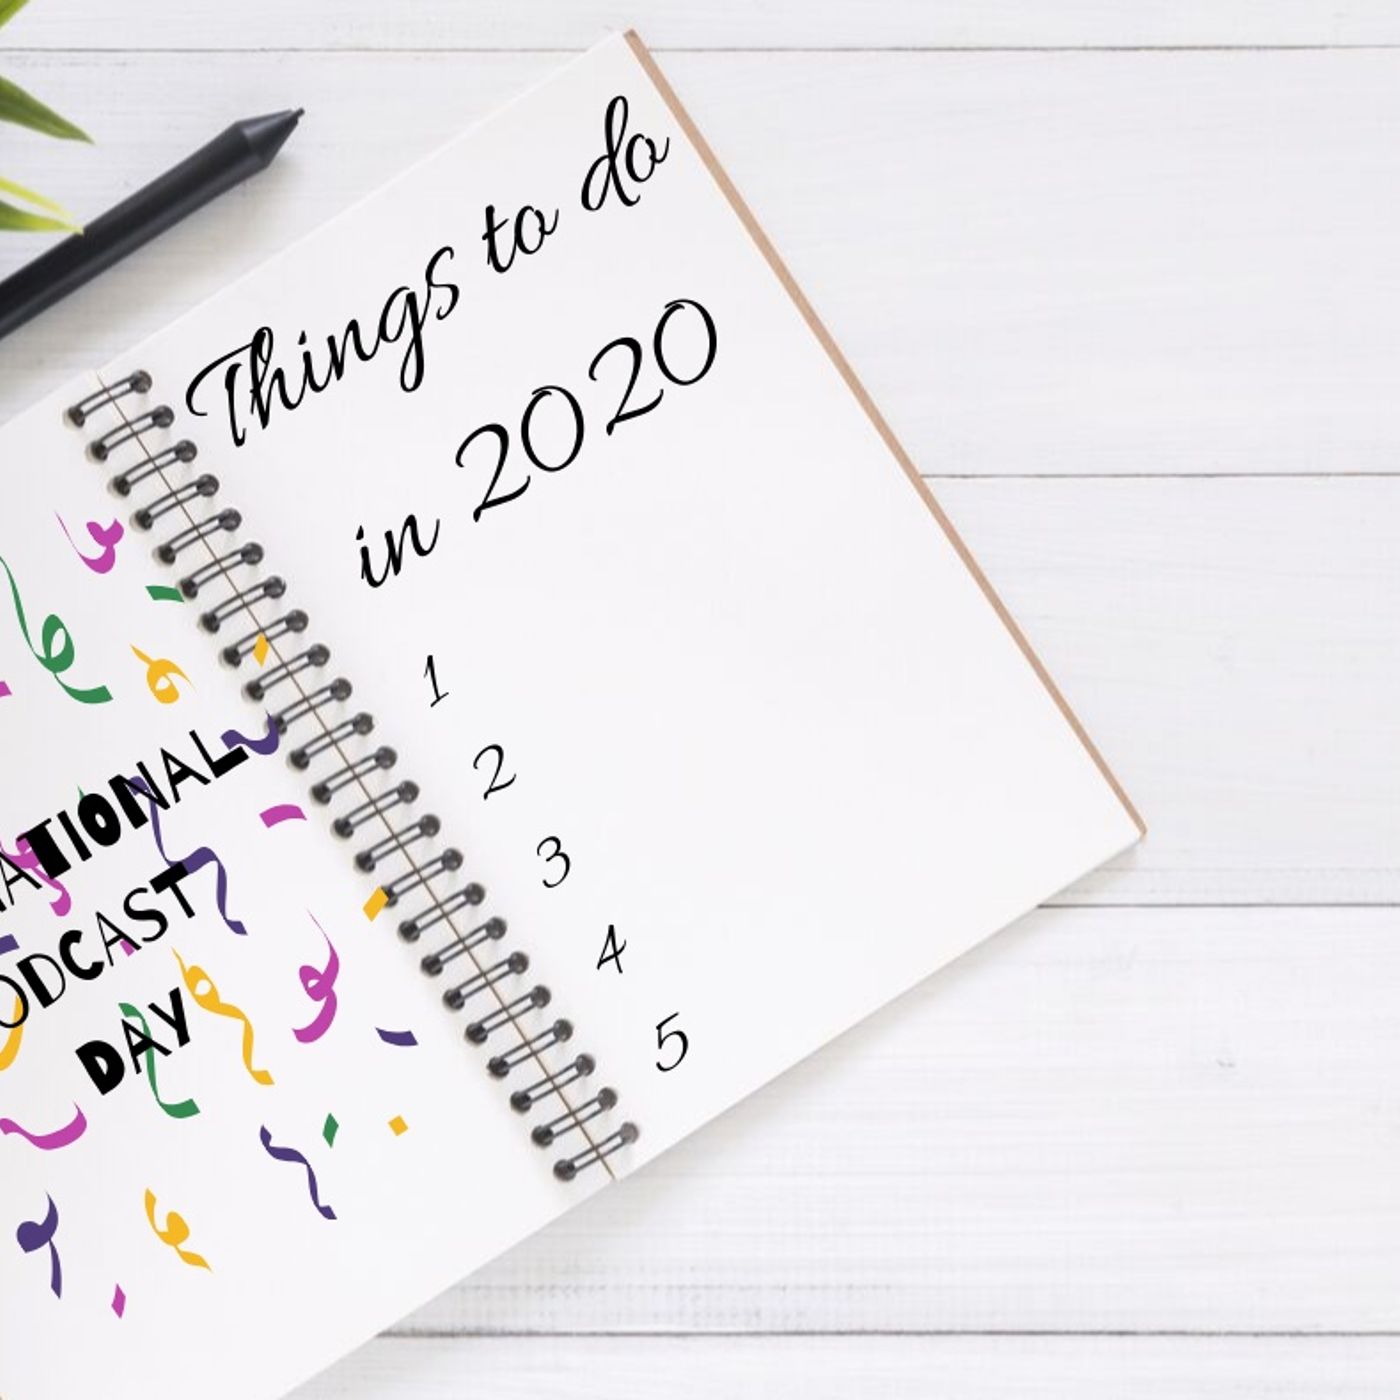 NATIONAL
ODCAST
DAY
Things to do
in 2020
1
2
3
4
5